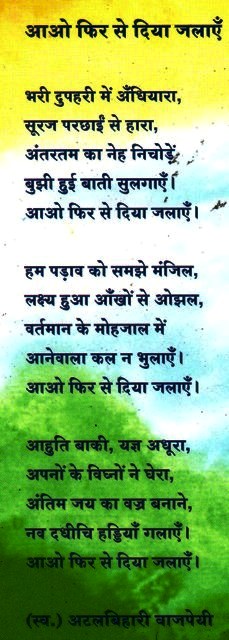 आओ फिर से दिया जलाएँ
भरी दुपहरी में अँधियारा,
सूरज परछाईं से हारा,
अंतरतम का नेह निचोड़ें,
बुझी हुई बाती सुलगाएँ।
आओ फिर से दिया जलाएँ।
हम पड़ाव को समझे मंजिल,
लक्ष्य हुआ आँखों से ओझल,
वर्तमान के मोहजाल में
आनेवाला कल न भुलाएँ।
आओ फिर से दिया जलाएँ।
आहुति बाकी, यज्ञ अधूरा,
अपनों के विघ्नों ने घेरा,
अंतिम जय का वज्र बनाने,
नव दधीचि हड्डियाँ गलाएँ।
आओ फिर से दिया जलाएँ।
(स्व.) अटलबिहारी बाजपेयी